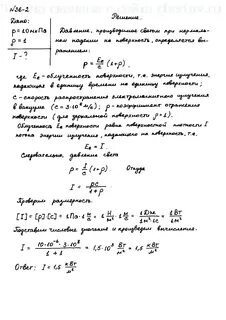 №36-2
Дано:
Решение
p=10мкПа
ρ=1
I-?
Давление, производимое светом при нормальном падении на поверхность, определяется выражением:
p = Eе/c (1+ρ),
где Eе - облученность поверхности, т.е. энергия излучения,
падающего в единицу времени на единицу поверхности;
c - скорость распространения электромагнитного излучения
в вакууме (c = 3·10⁸ м/с); ρ - коэффициент отражения
поверхности (для зеркальной поверхности ρ=1).
Облученность Eе поверхности равна поверхностной плотности I
потока энергии излучения, падающего на поверхность, т.е.
Eе = I.
Следовательно, давление света
p = I/c (1+ρ). Откуда
I = pc/(1+ρ)
Проверим размерность
[I] = [p][c] = 1 Па · 1 м/с = 1 Н/м² · 1 м/с = 1 Дж/м²·с = 1 Вт/м²
Подставим числовые значения и произведем вычисления.
I = 10·10⁻⁶·3·10⁸/(1+1) = 1,5·10³ Вт/м² = 1,5 кВт/м²
Ответ: I = 1,5 кВт/м²